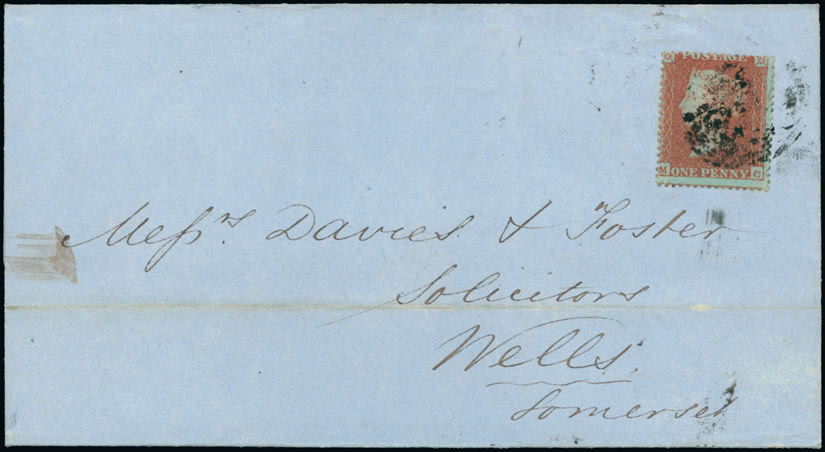 POSTAGE
M C
ONE PENNY
Meſsrs. Davies & Foster
Solicitors
Wells.
Somerset